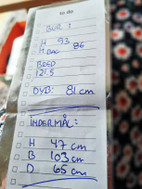 to do
BUR:
H 93
H BAG 86
BRED
121.5
DYB: 81 cm
INDERMÅL:
H 47 cm
B 103 cm
D 65 cm